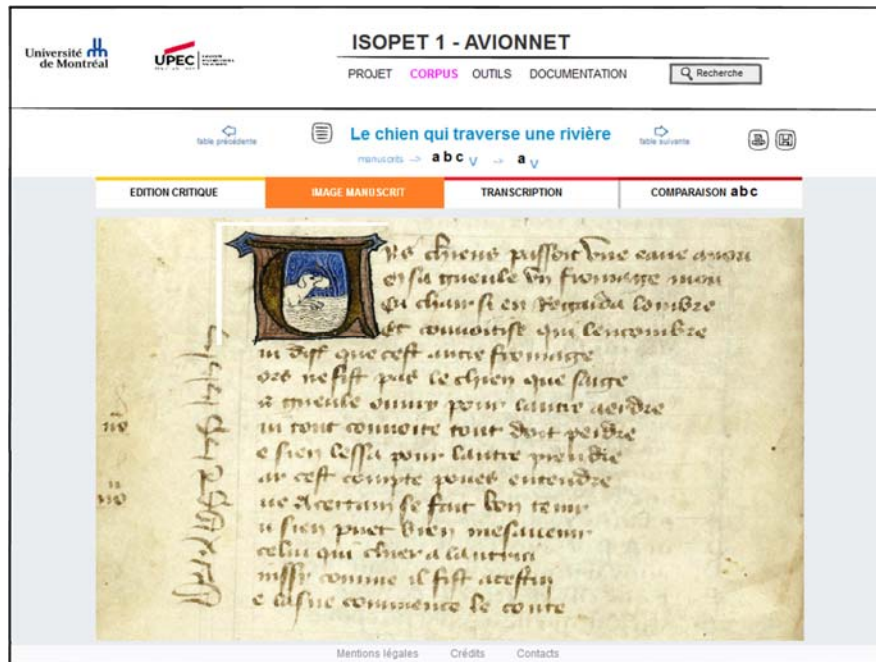 Université
de Montréal
UPEC
ISOPET 1 - AVIONNET
PROJET CORPUS OUTILS DOCUMENTATION
Recherche
fable précédente
Le chien qui traverse une rivière
fable suivante
manuscrits -> a b c v -> a v
EDITION CRITIQUE
IMAGE MANUSCRIT
TRANSCRIPTION
COMPARAISON abc
Uns chiens passoit une eaue
En sa gueule un fromage mou
chair si en Regarda lombre
Et convoitise qui lencombre
que cest autre fromage
ors ne fist pas le chien que sage
a gueule ouvry pour lautre aerdre
ui tout convoite tout doit perdre
e sien lessa pour lautre prendre
ar cest compte poues entendre
ue Acertain se fait bon tenir
u sien puet bien mesavenir
celui qui chier a lautrui
ussy comme il fist acestui
e lasne commence le conte
Mentions légales Crédits Contacts